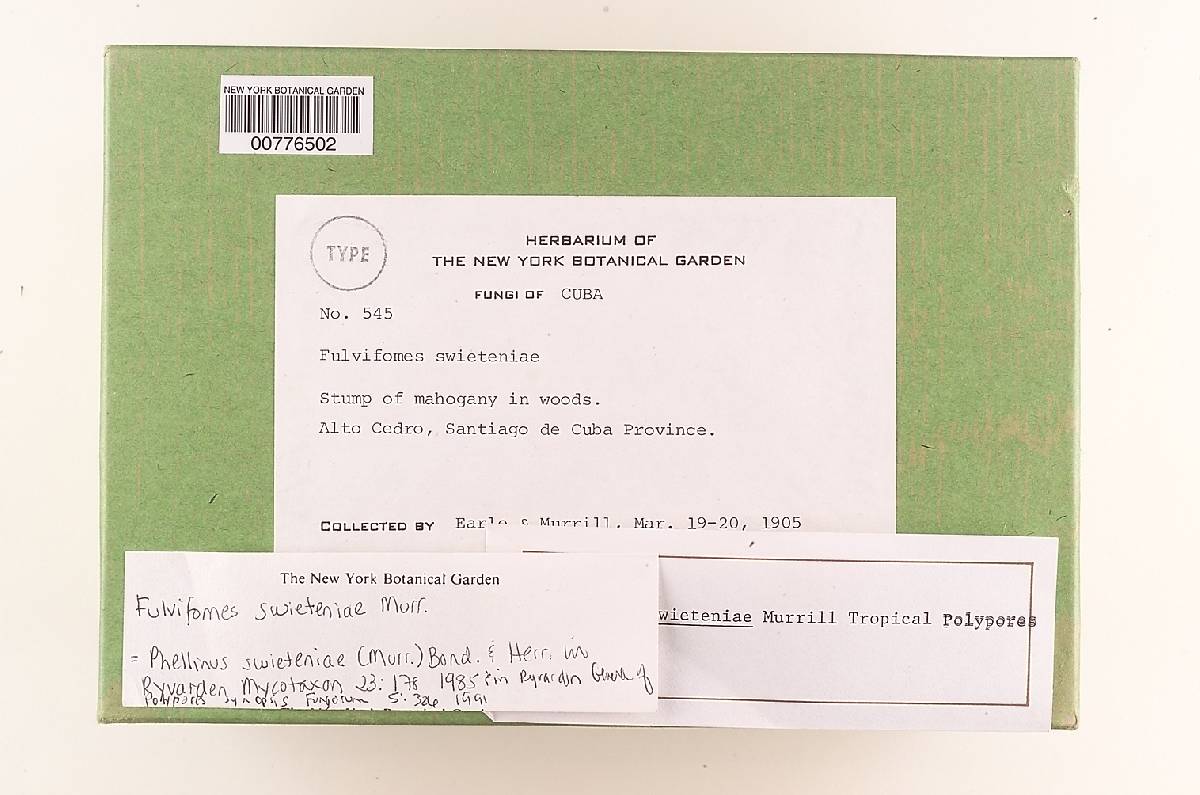 NEW YORK BOTANICAL GARDEN
00776502
TYPE
HERBARIUM OF
THE NEW YORK BOTANICAL GARDEN
FUNGI OF CUBA
No. 545
Fulvifomes swieteniae
Stump of mahogany in woods.
Alto Cedro, Santiago de Cuba Province.
COLLECTED BY Earle & Murrill. Mar. 19-20, 1905
The New York Botanical Garden
Fulvifomes swieteniae Murr.
= Phellinus swieteniae (Murr.) Bond. & Herr. in
Ryvarden Mycotaxon 23: 178 1985 & in Ryvarden Genera of
Polypores Synopsis Fungorum 5: 1991
wieteniae Murrill Tropical Polypores